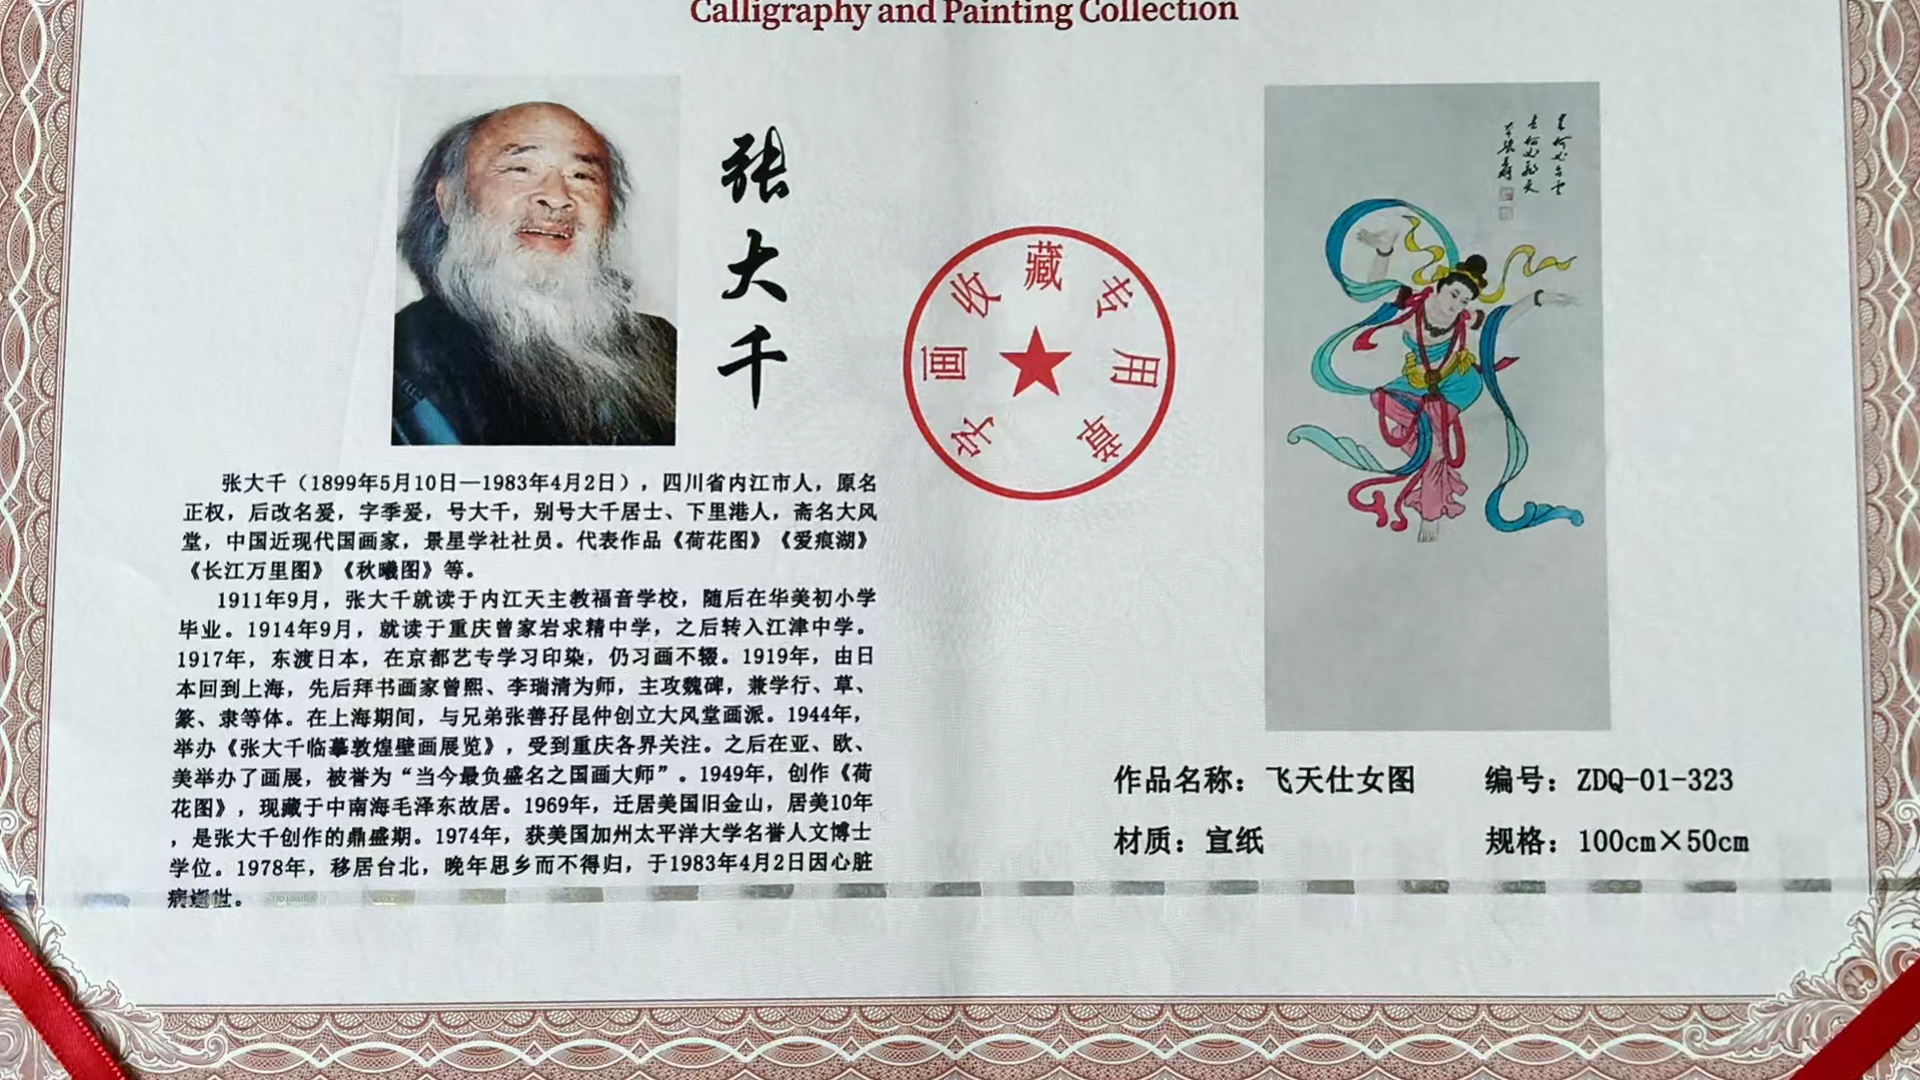 Calligraphy and Painting Collection
张大千
字画收藏专用章
张大千（1899年5月10日—1983年4月2日），四川省内江市人，原名
正权，后改名爰，字季爰，号大千，别号大千居士、下里港人，斋名大风
堂，中国近现代国画家，景星学社社员。代表作品《荷花图》《爱痕湖》
《长江万里图》《秋曦图》等。
1911年9月，张大千就读于内江天主教福音学校，随后在华美初小学
毕业。1914年9月，就读于重庆曾家岩求精中学，之后转入江津中学。
1917年，东渡日本，在京都艺专学习印染，仍习画不辍。1919年，由日
本回到上海，先后拜书画家曾熙、李瑞清为师，主攻魏碑，兼学行、草、
篆、隶等体。在上海期间，与兄弟张善孖昆仲创立大风堂画派。1944年，
举办《张大千临摹敦煌壁画展览》，受到重庆各界关注。之后在亚、欧、
美举办了画展，被誉为“当今最负盛名之国画大师”。1949年，创作《荷
花图》，现藏于中南海毛泽东故居。1969年，迁居美国旧金山，居美10年
，是张大千创作的鼎盛期。1974年，获美国加州太平洋大学名誉人文博士
学位。1978年，移居台北，晚年思乡而不得归，于1983年4月2日因心脏
病逝世。
作品名称：飞天仕女图
编号：ZDQ-01-323
材质：宣纸
规格：100cm×50cm